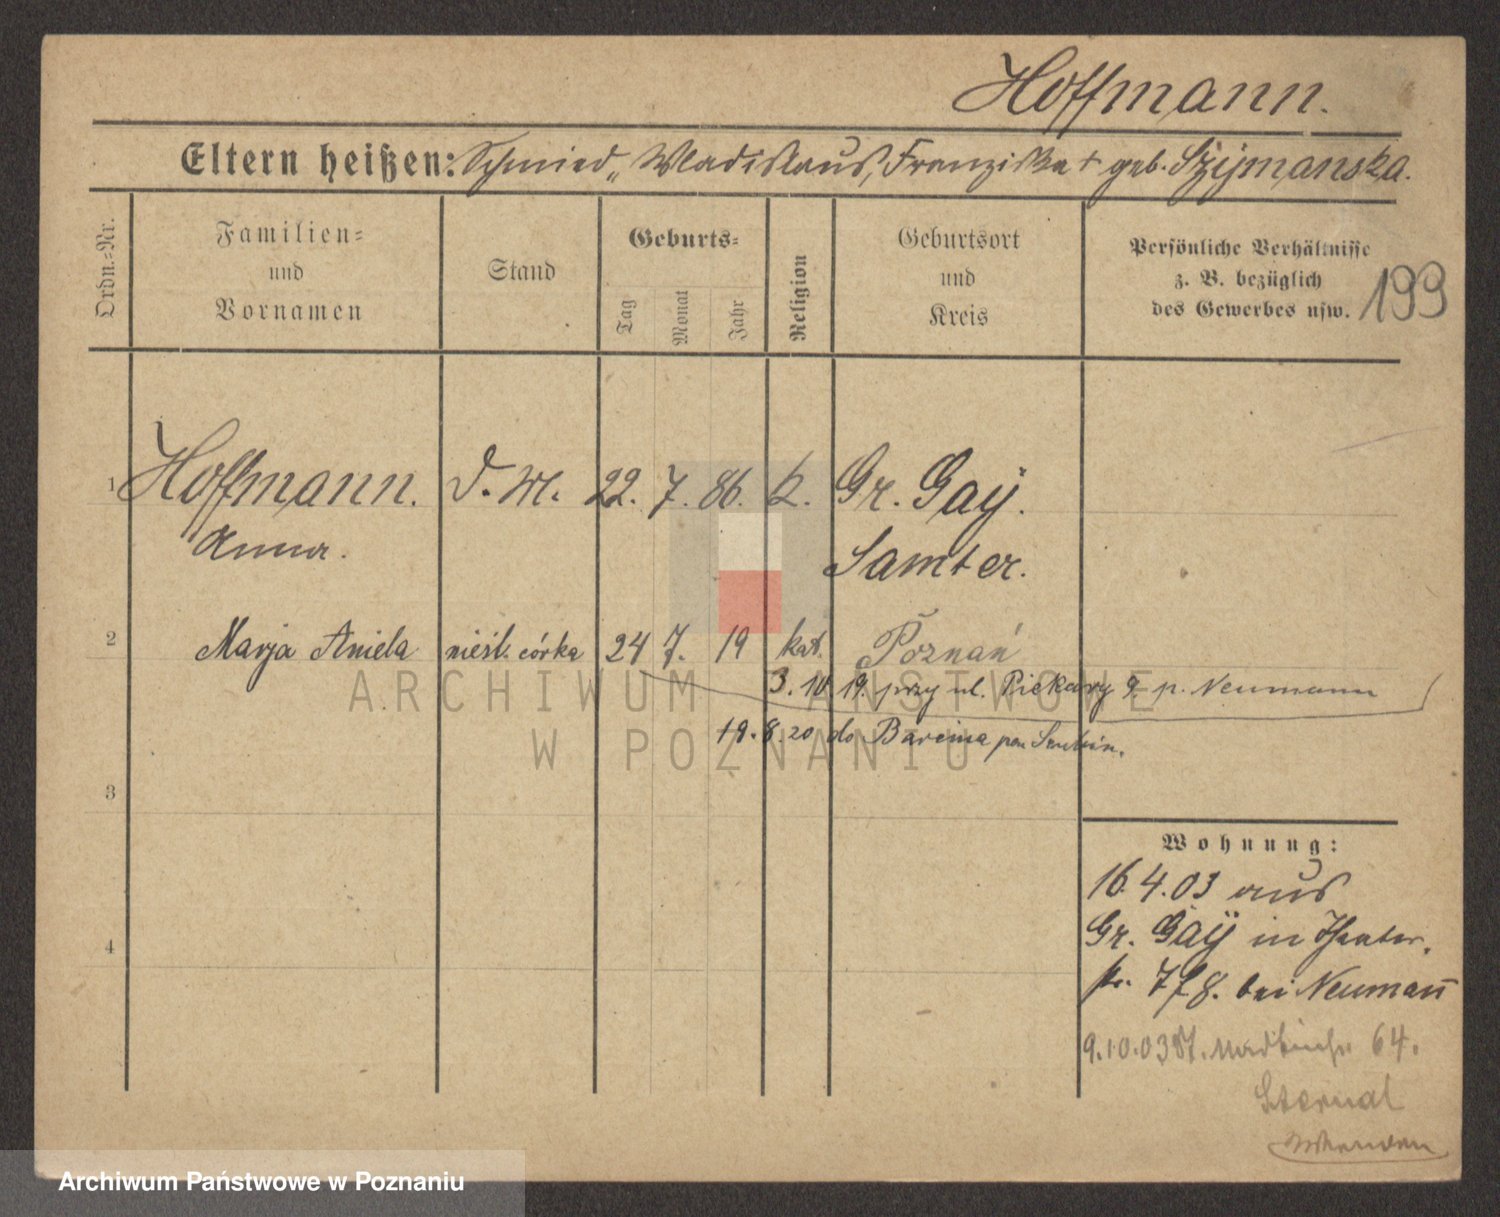 Hoffmann.
Eltern heißen: Schmied „ Wladislaus, Franziska + geb. Szymanska.
Ordn.-Nr.
Familien-
und
Vornamen
Stand
Geburts-
Tag
Monat
Jahr
Religion
Geburtsort
und
Kreis
Persönliche Verhältnisse
z. B. bezüglich
des Gewerbes usw.
199
1 Hoffmann. D. M. 22. 7. 86. k. Gr. Gay.
Anna. Samter.
2 Marja Aniela nieśl. córka 24 7. 19 kat. Poznań
3. 10 19. przy ul. Piekary 9. p. Neumann
19. 8. 20 do Barcina pow
3
4
Wohnung:
16.4.03 aus
Gr. Gaÿ in Theater
str. 7/8. bei Neumann
9.10.03 64.
Sternal
ARCHIWUM PAŃSTWOWE
W POZNANIU
Archiwum Państwowe w Poznaniu